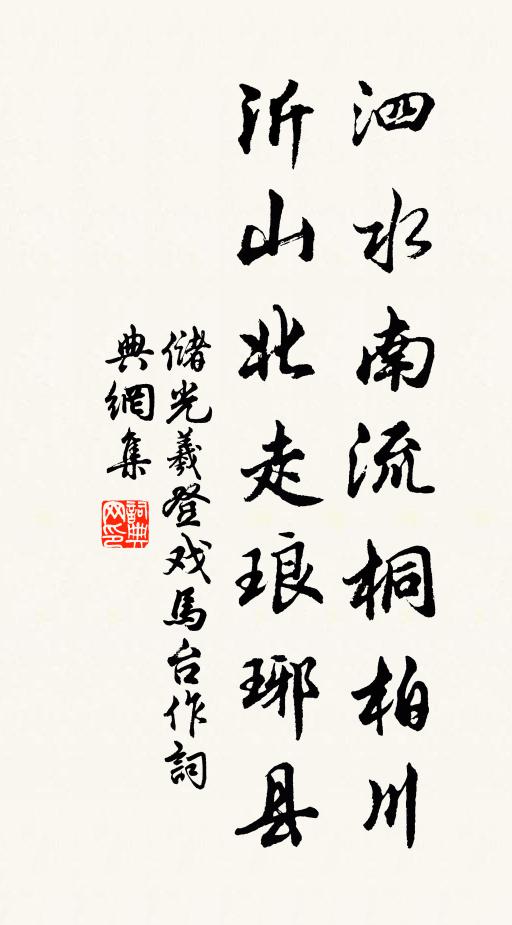 泗水南流桐柏川
沂山北走琅琊县
儲光羲登戏馬台作詞
典網集
詞典
网印